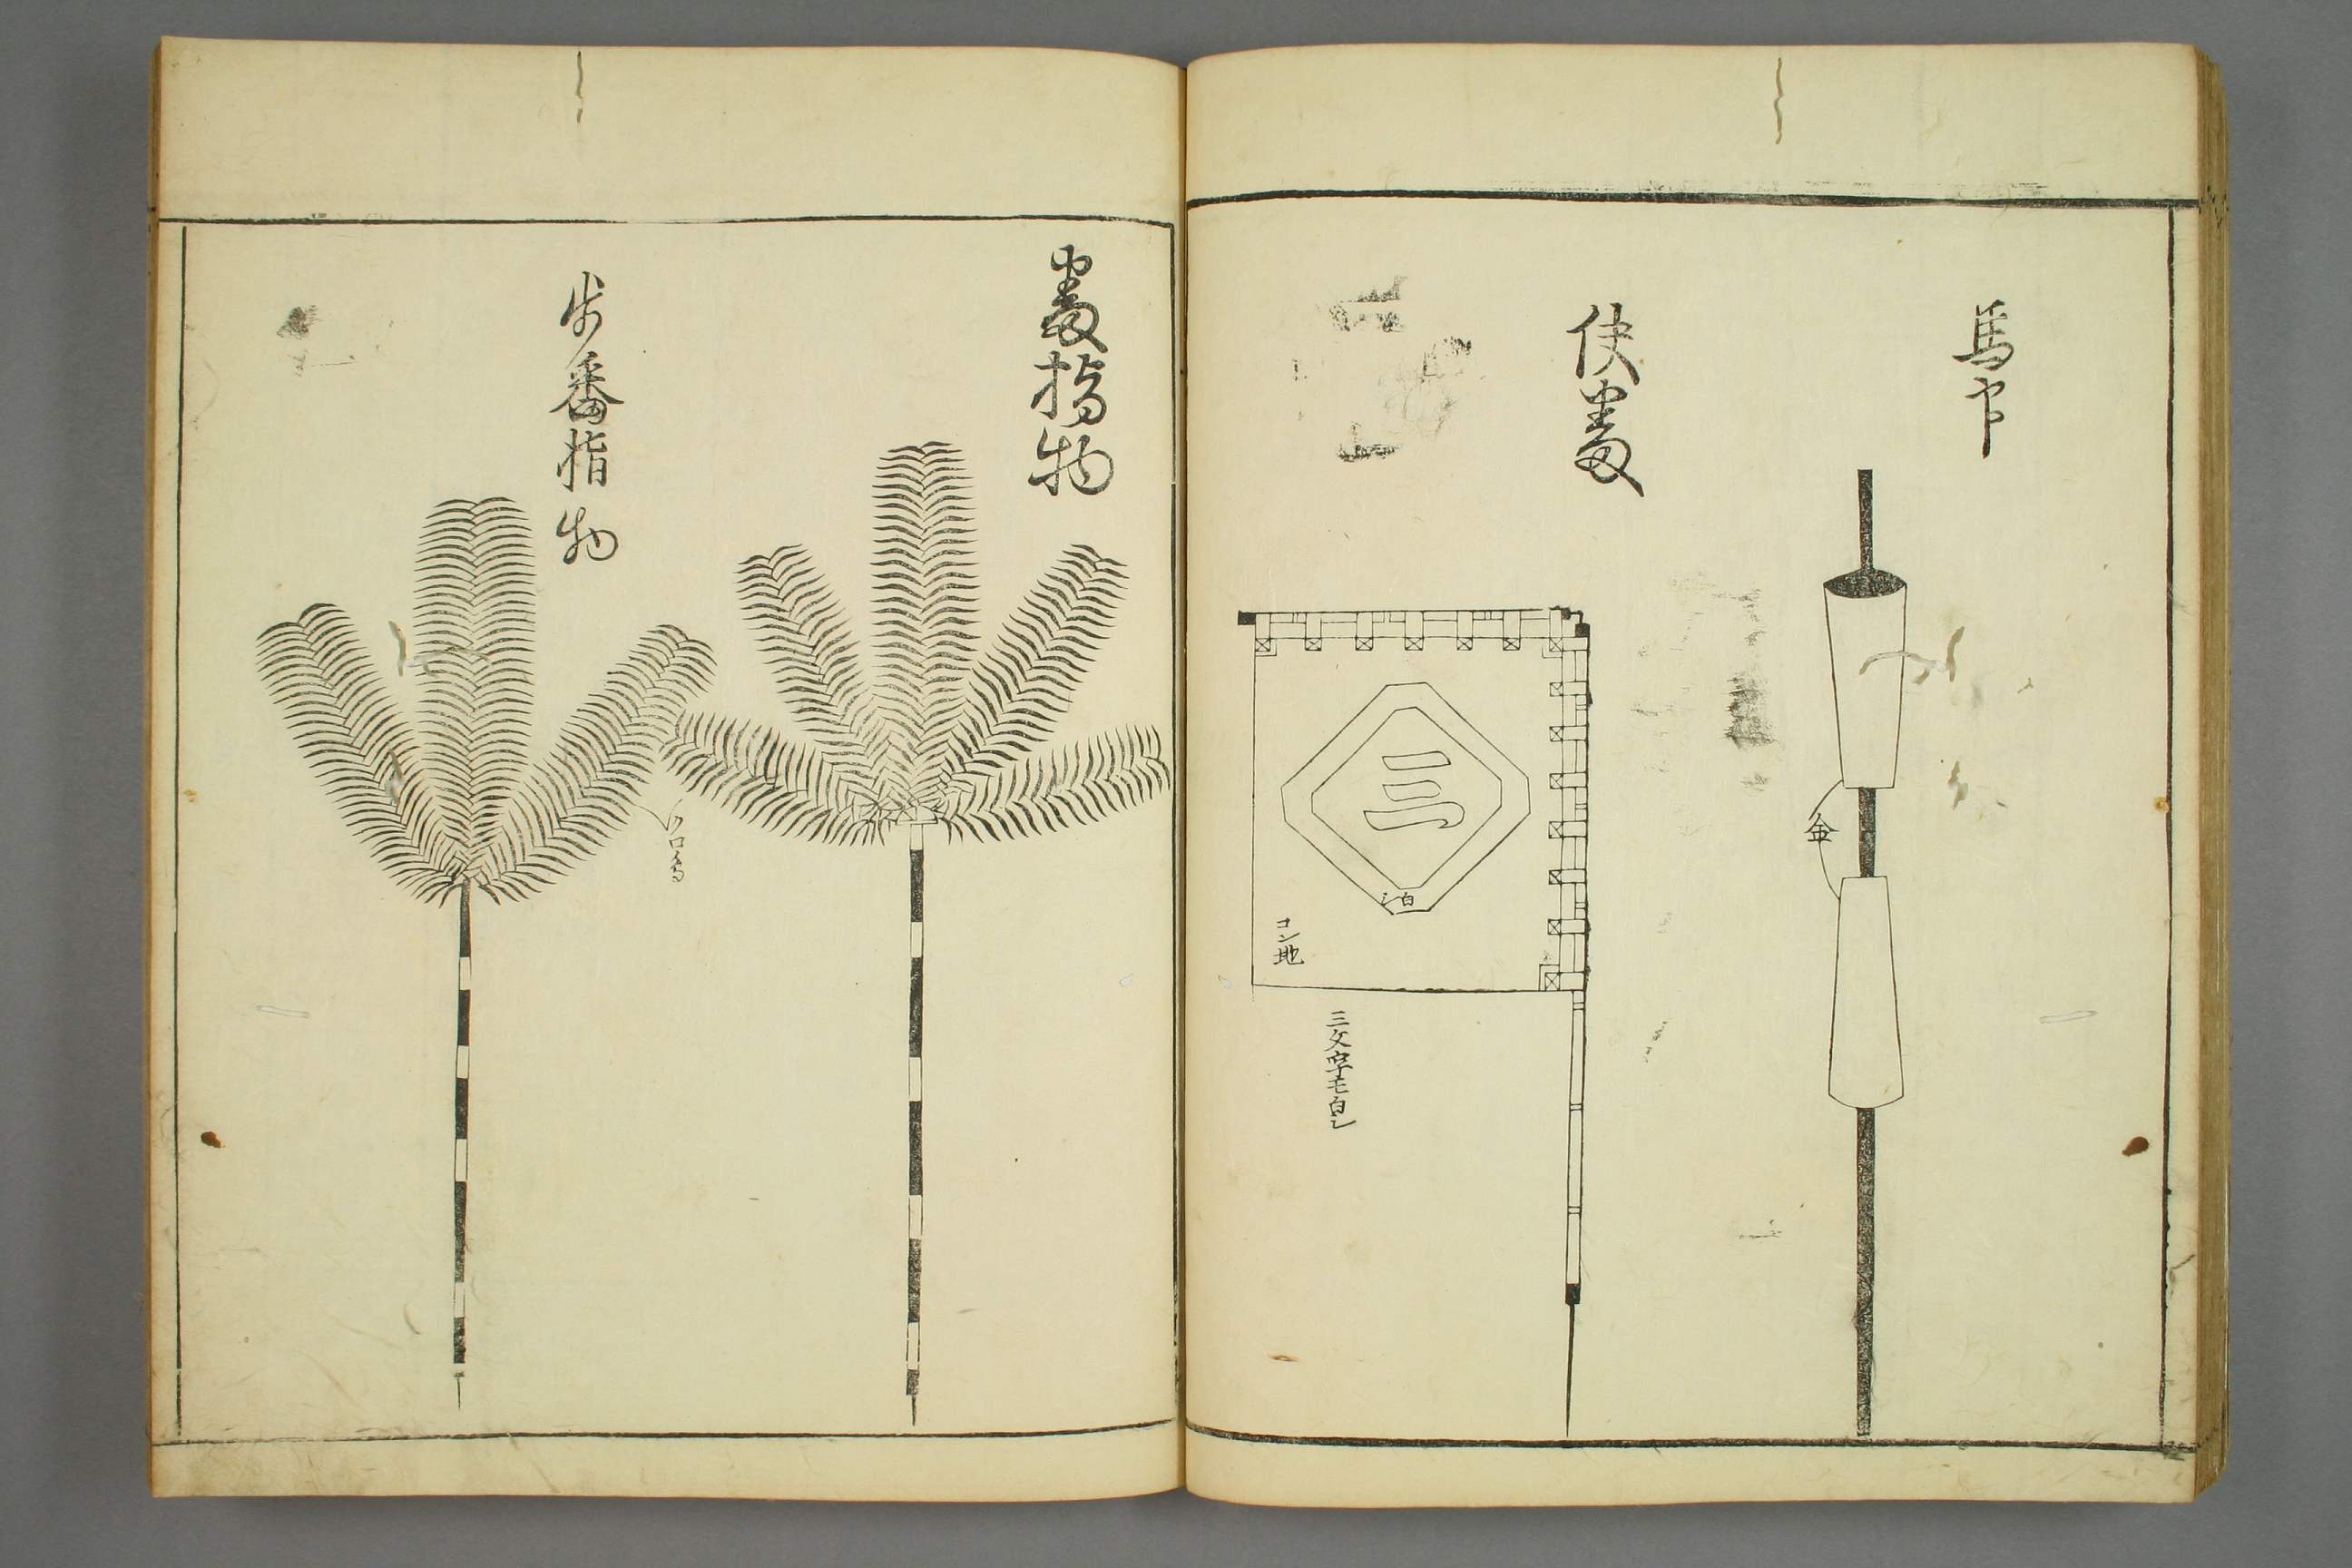 馬印
金
使番
三
白シ
コン地
三文字モ白シ
番指物
歩番指物